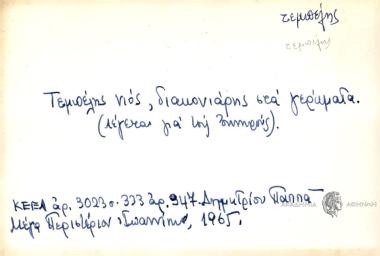 τεμπέλης
τεμπέλης
Τεμπέλης νιός, διακονιάρης στά γεράματα.
(Λέγεται γιά τούς ζητιάνους).
ΚΕΕΛ ἀρ. 3023 σ. 333 ἀρ. 947. Δημητρίου Παππᾶ
Μέγα Περιστέριον Ἰωαννίνων, 1965.
ΑΚΑΔΗΜΙΑ ΑΘΗΝΩΝ